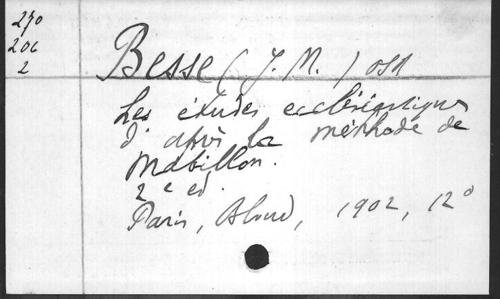 270
206
2
Besse (J. M.) OSB
Les études ecclésiastiques
d'après la méthode de
Mabillon.
2e ed.
Paris, Bloud, 1902, 12°